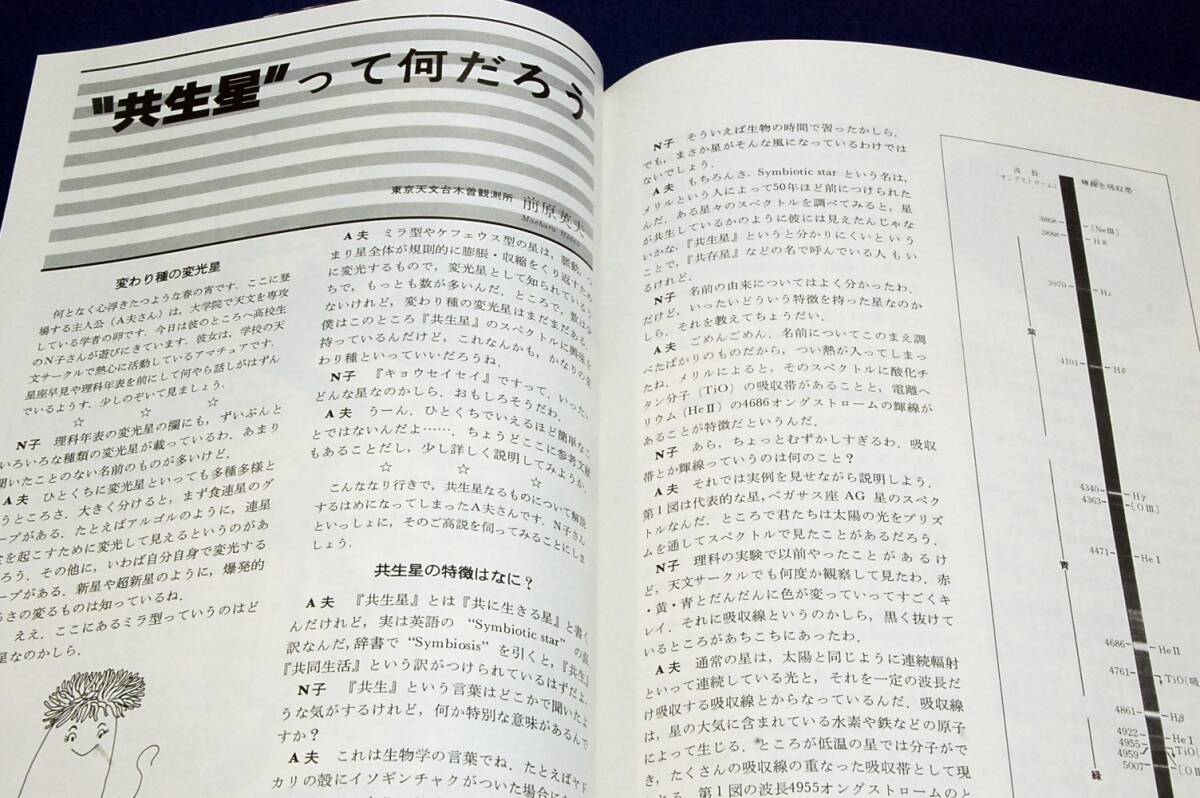 “共生星”って何だろう
東京天文台木曽観測所 前原英夫
Maehara Hideo
変わり種の変光星
何となく心浮きたつような春の宵です．ここに登
場する主人公（A夫さん）は，大学院で天文を専攻
している学者の卵です．今日は彼のところへ高校生
のN子さんが遊びにきています．彼女は，学校の天
文サークルで熱心に活動しているアマチュアです．
星座早見や理科年表を前にして何やら話しがはずん
でいるようす．少しのぞいて見ましょう．
☆ ☆
☆
N子 理科年表の変光星の欄にも，ずいぶんと
いろいろな種類の変光星が載っているわ．あまり
聞いたことのない名前のものが多いけど．
A夫 ひとくちに変光星といっても多種多様と
うところさ．大きく分けると，まず食連星のグ
ープがある．たとえばアルゴルのように，連星
を起こすために変光して見えるというのがあ
ろう．その他に，いわば自分自身で変光する
ープがある．新星や超新星のように，爆発的
るさの変るものは知っているね．
ええ．ここにあるミラ型っていうのはど
星なのかしら．
A夫 ミラ型やケフェウス型の星は，脈動，つ
まり星全体が規則的に膨脹・収縮をくり返すため
に変光するもので，変光星として知られているう
ちで，もっとも数が多いんだ．ところで，数は少
ないけれど，変わり種の変光星はまだまだある．
僕はこのところ『共生星』のスペクトルに興味を
持っているんだけど，これなんかも，かなりの変
わり種といっていいだろうね．
N子 『キョウセイセイ』ですって．いったい
どんな星なのかしら．おもしろそうだわ．
A夫 うーん．ひとくちでいえるほど簡単なこ
とではないんだよ……．ちょうどここに参考文献
もあることだし，少し詳しく説明してみようか．
☆ ☆
こんななり行きで，共生星なるものについて解説
するはめになってしまったA夫さんです．N子さん
といっしょに，そのご高説を伺ってみることにしま
しょう．
共生星の特徴はなに？
A夫 『共生星』とは『共に生きる星』と書く
んだけれど，実は英語の “Symbiotic star” の直
訳なんだ．辞書で “Symbiosis” を引くと，『共生』
『共同生活』という訳がつけられているはずだよ．
N子 『共生』という言葉はどこかで聞いたよ
うな気がするけれど，何か特別な意味があるんで
すか？
A夫 これは生物学の言葉でね．たとえばヤド
カリの殻にイソギンチャクがついた場合に
N子 そういえば生物の時間で習ったかしら．
でも，まさか星がそんな風になっているわけでは
ないでしょう．
A夫 もちろんさ．Symbiotic star という名は，
メリルという人によって50年ほど前につけられた
んだ．ある星々のスペクトルを調べてみると，星
が共生しているかのように彼には見えたんじゃな
いかな．『共生星』というと分かりにくいという
ことで，『共存星』などの名で呼んでいる人もい
るけれど．
N子 名前の由来についてはよく分かったわ．
だけど，いったいどういう特徴を持った星なのか
しら，それを教えてちょうだい．
A夫 ごめんごめん．名前についてこのまえ調
べたばかりのものだから，つい熱が入ってしまっ
たね．メリルによると，そのスペクトルに酸化チ
タン分子（TiO）の吸収帯があることと，電離ヘ
リウム（HeII）の4686オングストロームの輝線が
あることが特徴だというんだ．
N子 あら，ちょっとむずかしすぎるわ．吸収
帯とか輝線っていうのは何のこと？
A夫 それでは実例を見せながら説明しよう．
第1図は代表的な星，ペガサス座 AG 星のスペク
トルなんだ．ところで君たちは太陽の光をプリズ
ムを通してスペクトルで見たことがあるだろう．
N子 理科の実験で以前やったことがあるけ
ど，天文サークルでも何度か観察して見たわ．赤
・黄・青とだんだんに色が変っていってすごくキ
レイ．それに吸収線というのかしら，黒く抜けて
いるところがあちこちにあったわ．
A夫 通常の星は，太陽と同じように連続輻射
といって連続している光と，それを一定の波長だ
け吸収する吸収線とからなっているんだ．吸収線
は，星の大気に含まれている水素や鉄などの原子
によって生じる．ところが低温の星では分子がで
き，たくさんの吸収線の重なった吸収帯として現
とる．第1図の波長4955オングストロームのと
波長
（オングストローム）
輝線と吸収帯
3868 (NeIII)
3888 H8
3970 Hε
紫
4101 Hδ
4340 Hγ
4363 〔OIII〕
4471 HeI
青
4686 HeII
4761 TiO(吸
4861 Hβ
4922 HeI
4955 TiO(
4959
5007 〔OII
緑